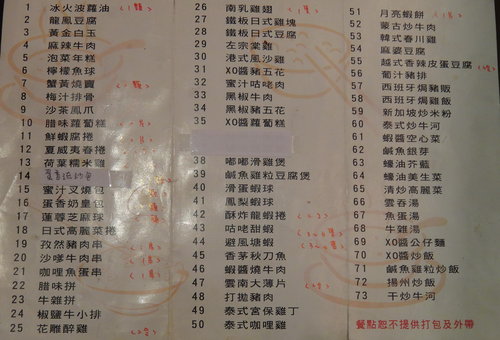 1 冰火波蘿油
2 龍鳳豆腐
3 黃金白玉
4 麻辣牛肉
5 泡菜年糕
6 檸檬魚球
7 蟹黃燒賣
8 梅汁排骨
9 沙茶鳳爪
10 腊味蘿蔔糕
11 鮮蝦腐捲
12 夏威夷春捲
13 荷葉糯米雞
14
15 蜜汁叉燒包
16 蛋香奶皇包
17 蓮蓉芝麻球
18 日式高麗菜捲
19 孜然豬肉串
20 沙嗲牛肉串
21 咖哩魚蛋串
22 腊味拼
23 牛雜拼
24 椒鹽牛小排
25 花雕醉雞
26 南乳雞翅
27 鐵板日式雞塊
28 鐵板日式豆腐
29 左宗棠雞
30 港式風沙雞
31 XO醬豬五花
32 蜜汁咕咾肉
33 黑椒牛肉
34 黑椒豬五花
35 XO醬蘿蔔糕
38 嘟嘟滑雞煲
39 鹹魚雞粒豆腐煲
40 滑蛋蝦球
41 鳳梨蝦球
42 酥炸龍蝦捲
43 咕咾甜蝦
44 避風塘蝦
45 香茅秋刀魚
46 蝦醬燒牛肉
47 雲南大薄片
48 打拋豬肉
49 泰式宮保雞丁
50 泰式咖哩雞
51 月亮蝦餅
52 蒙古炒牛肉
53 韓式春川雞
54 麻婆豆腐
55 越式香辣皮蛋豆腐
56 葡汁豬排
57 西班牙焗豬飯
58 西班牙焗雞飯
59 新加坡炒米粉
60 泰式炒牛河
61 蝦醬空心菜
62 鹹魚銀芽
63 蠔油芥藍
64 蠔油美生菜
65 清炒高麗菜
66 雲吞湯
67 魚蛋湯
68 牛雜湯
69 XO醬公仔麵
70 XO醬炒飯
71 鹹魚雞粒炒飯
72 揚州炒飯
73 干炒牛河
餐點恕不提供打包及外帶